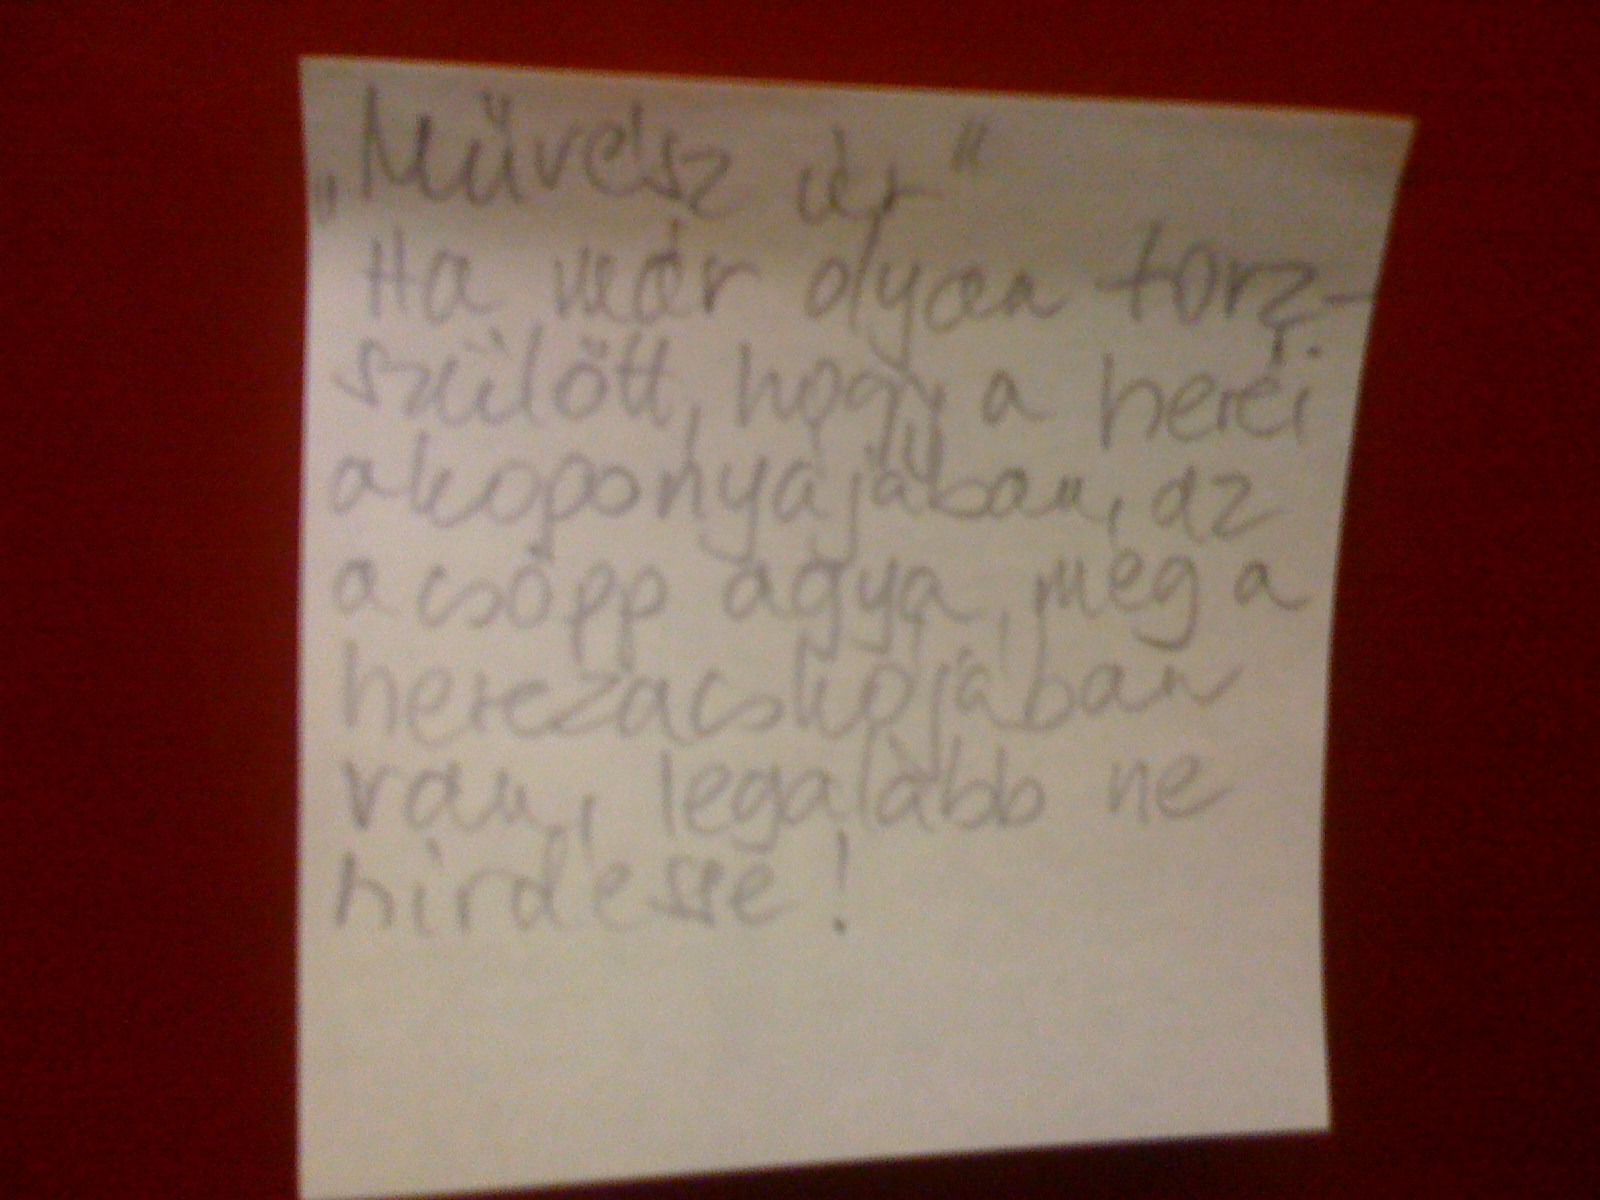 „Művész úr"
Ha már olyan torz-
szülött, hogy a heréi
a koponyájában, az
a csöpp agya, meg a
herezacskójában
van, legalább ne
hirdesse!